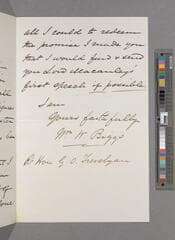 all I could to redeem
the promise I made you
that I would find & send
you Lord Macaulay's
first speech if possible
I am
Yours faithfully
Wm W Biggs
Rt Hon G. O. Trevelyan